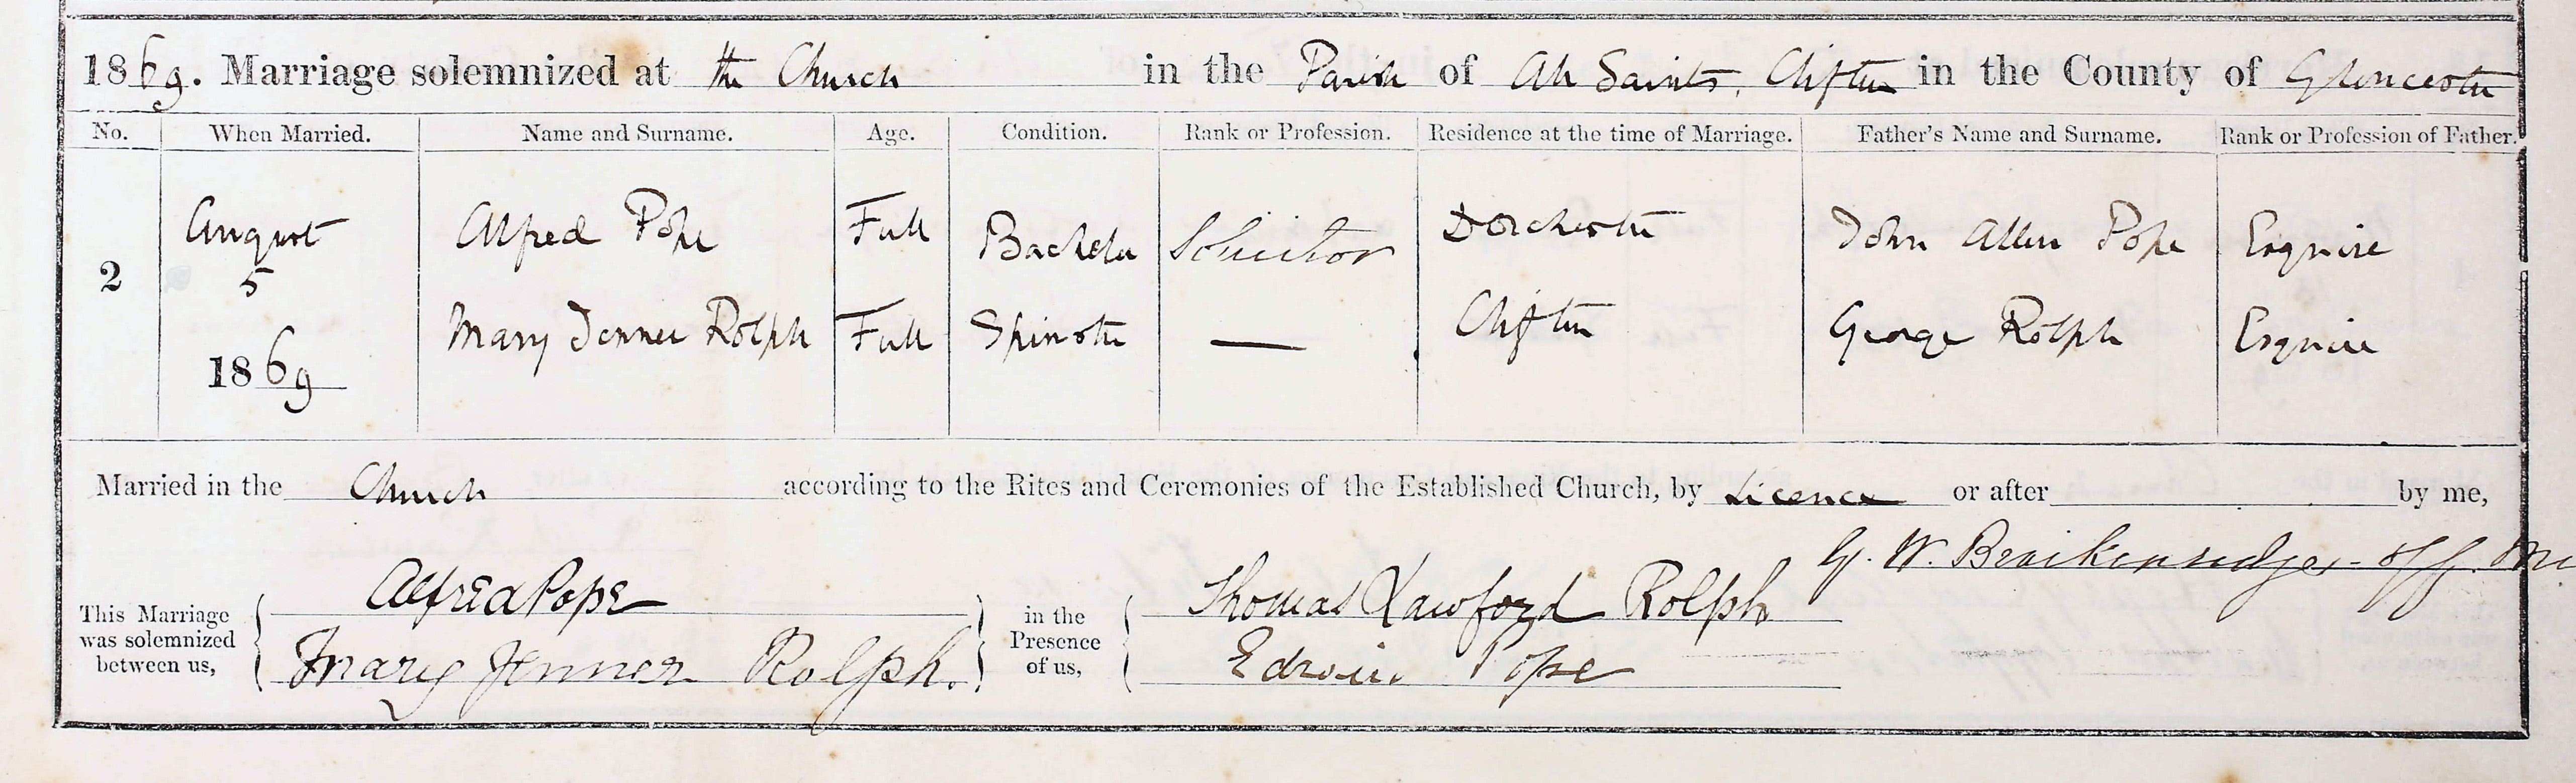 1869. Marriage solemnized at the Church in the Parish of All Saints, Clifton in the County of Gloucester
No. When Married. Name and Surname. Age. Condition. Rank or Profession. Residence at the time of Marriage. Father's Name and Surname. Rank or Profession of Father.
2 August 5 1869 Alfred Pope Full Bachelor Solicitor Dorchester John Allen Pope Esquire
Mary Jenner Rolph Full Spinster — Clifton George Rolph Esquire
Married in the Church according to the Rites and Ceremonies of the Established Church, by Licence or after by me,
G. W. Braikenridge - Off. Mi
This Marriage was solemnized between us, Alfred Pope in the Presence of us, Thomas Lawford Rolph
Mary Jenner Rolph. Edwin Pope